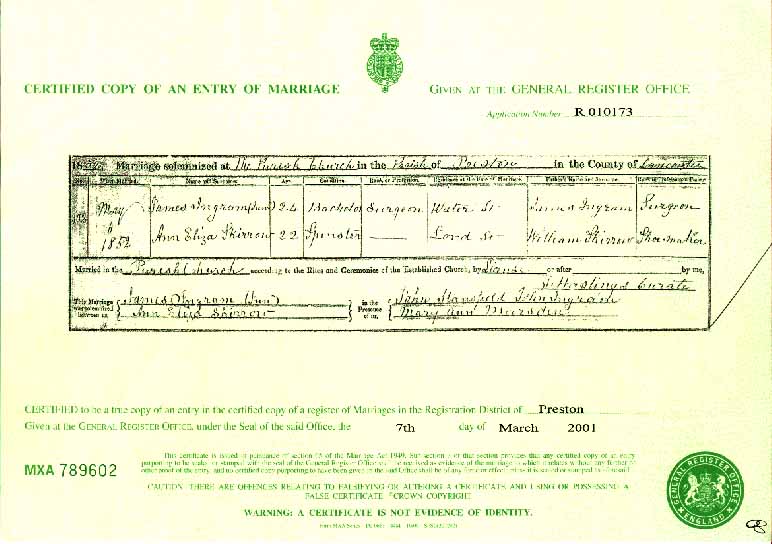 CERTIFIED COPY OF AN ENTRY OF MARRIAGE
GIVEN AT THE GENERAL REGISTER OFFICE
Application Number R 010173
Marriage solemnized at The Parish Church in the Parish of Preston in the County of Lancaster
When Married. Name and Surname. Age Condition. Rank or Profession. Residence at the time of Marriage. Father's Name and Surname. Rank or Profession of Father.
May 6 1852
James Ingram (Jun) 24 Bachelor Surgeon Water St James Ingram Surgeon
Ann Eliza Skirrow 22 Spinster — Lord St William Skirrow Shoemaker
Married in the Parish Church according to the Rites and Ceremonies of the Established Church, by License or after by me,
Hastings Curate
This Marriage was solemnized between us, James Ingram (Jun) Ann Eliza Skirrow in the Presence of us, John Mansfield John Ingram Mary Ann Marsden
CERTIFIED to be a true copy of an entry in the certified copy of a register of Marriages in the Registration District of Preston
Given at the GENERAL REGISTER OFFICE, under the Seal of the said Office, the 7th day of March 2001
MXA 789602
This certificate is issued in pursuance of section 65 of the Marriage Act 1949. Sub-section 3 of that section provides that any certified copy of an entry
purporting to be sealed or stamped with the seal of the General Register Office shall be received as evidence of the marriage to which it relates without any further or
other proof of the entry, and no certified copy purporting to have been given in the said Office shall be of any force or effect unless it is sealed or stamped as aforesaid.
CAUTION: THERE ARE OFFENCES RELATING TO FALSIFYING OR ALTERING A CERTIFICATE AND USING OR POSSESSING A
FALSE CERTIFICATE. ©CROWN COPYRIGHT
WARNING: A CERTIFICATE IS NOT EVIDENCE OF IDENTITY.
GENERAL REGISTER OFFICE
ENGLAND